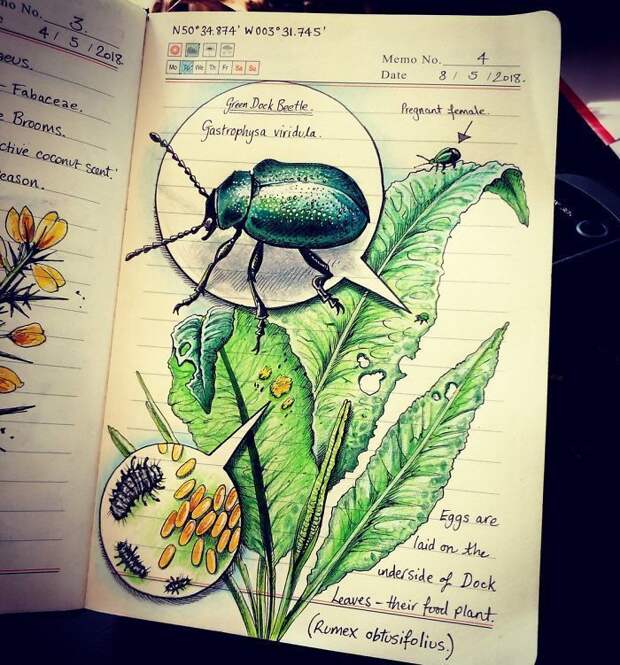 no No. 3.
4 / 5 / 2018
aeus.
- Fabaceae.
e Brooms.
ctive coconut scent.'
eason.
N50°34.874' W003°31.745'
Mo Tu We Th Fr Sa Su
Memo No. 4
Date 8 / 5 / 2018.
Green Dock Beetle.
Gastrophysa viridula.
Pregnant female.
Eggs are
laid on the
underside of Dock
Leaves - their food plant.
(Rumex obtusifolius.)